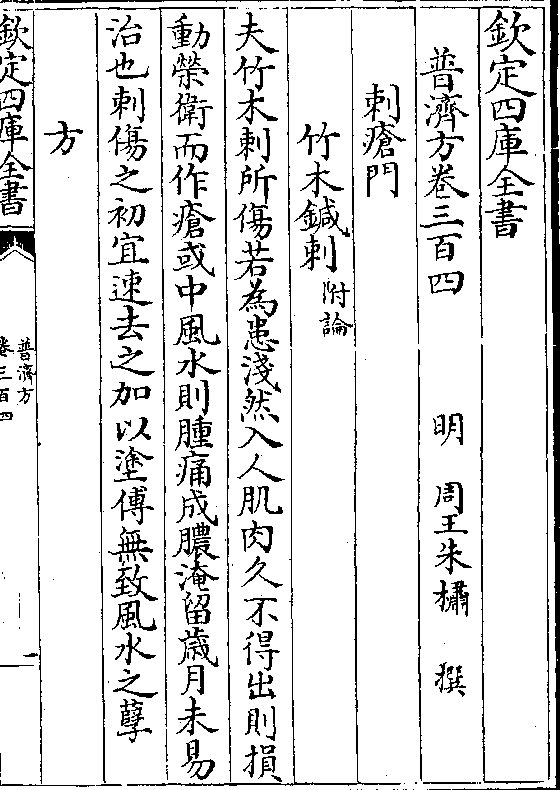 欽定四庫全書
普濟方卷三百四
明　周王朱橚　撰
刺瘡門
竹木鍼刺附論
夫竹木刺所傷若為患淺然入人肌肉久不得出則損
動榮衛而作瘡或中風水則腫痛成膿淹留歲月未易
治也刺傷之初宜速去之加以塗傅無致風水之孽
方
欽定四庫全書
普濟方
卷三百四